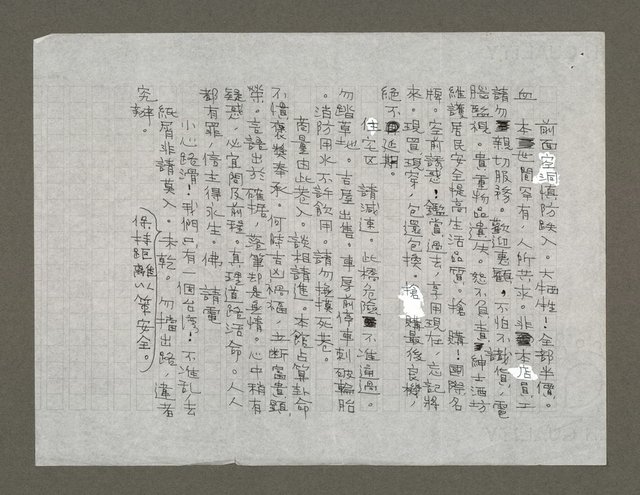 前面空洞慎防跌入。大牲！全部半價。
血　本　世間罕有，人所共求。非　本店員工
請勿　親切服務。歡迎惠顧。不怕不識貨，電
腦監視。貴重物品遺失。恕不負責　紳士酒坊
維護居民安全提高生活品質。搶　購！國際名
牌。空前誘惑！鑑賞過去，享用現在，忘記將
來。現買現穿，包退包換。搶　購最後良機，
絕不　延期。
住宅區　請減速。此橋危險　不准通過。
勿踏草地。吉屋出售。車房前停車刺破輪胎
。消防用水不許飲用。請勿　死巷。
商量由此巷入。談相請進。本館占算卦命
不慣褒獎奉承。何時吉凶禍福，立斷富貴顯
榮。言語出於確據，落筆却是無情。心中稍有
疑惑，必宜問及前程。真理道路活命。人人
都有罪，信主得永生。佛　請電
小心路滑！我們只有一個台灣！不准亂丟
紙屑非請莫入。未乾。勿擋出路，違者
究辦。
保持距離以策安全。